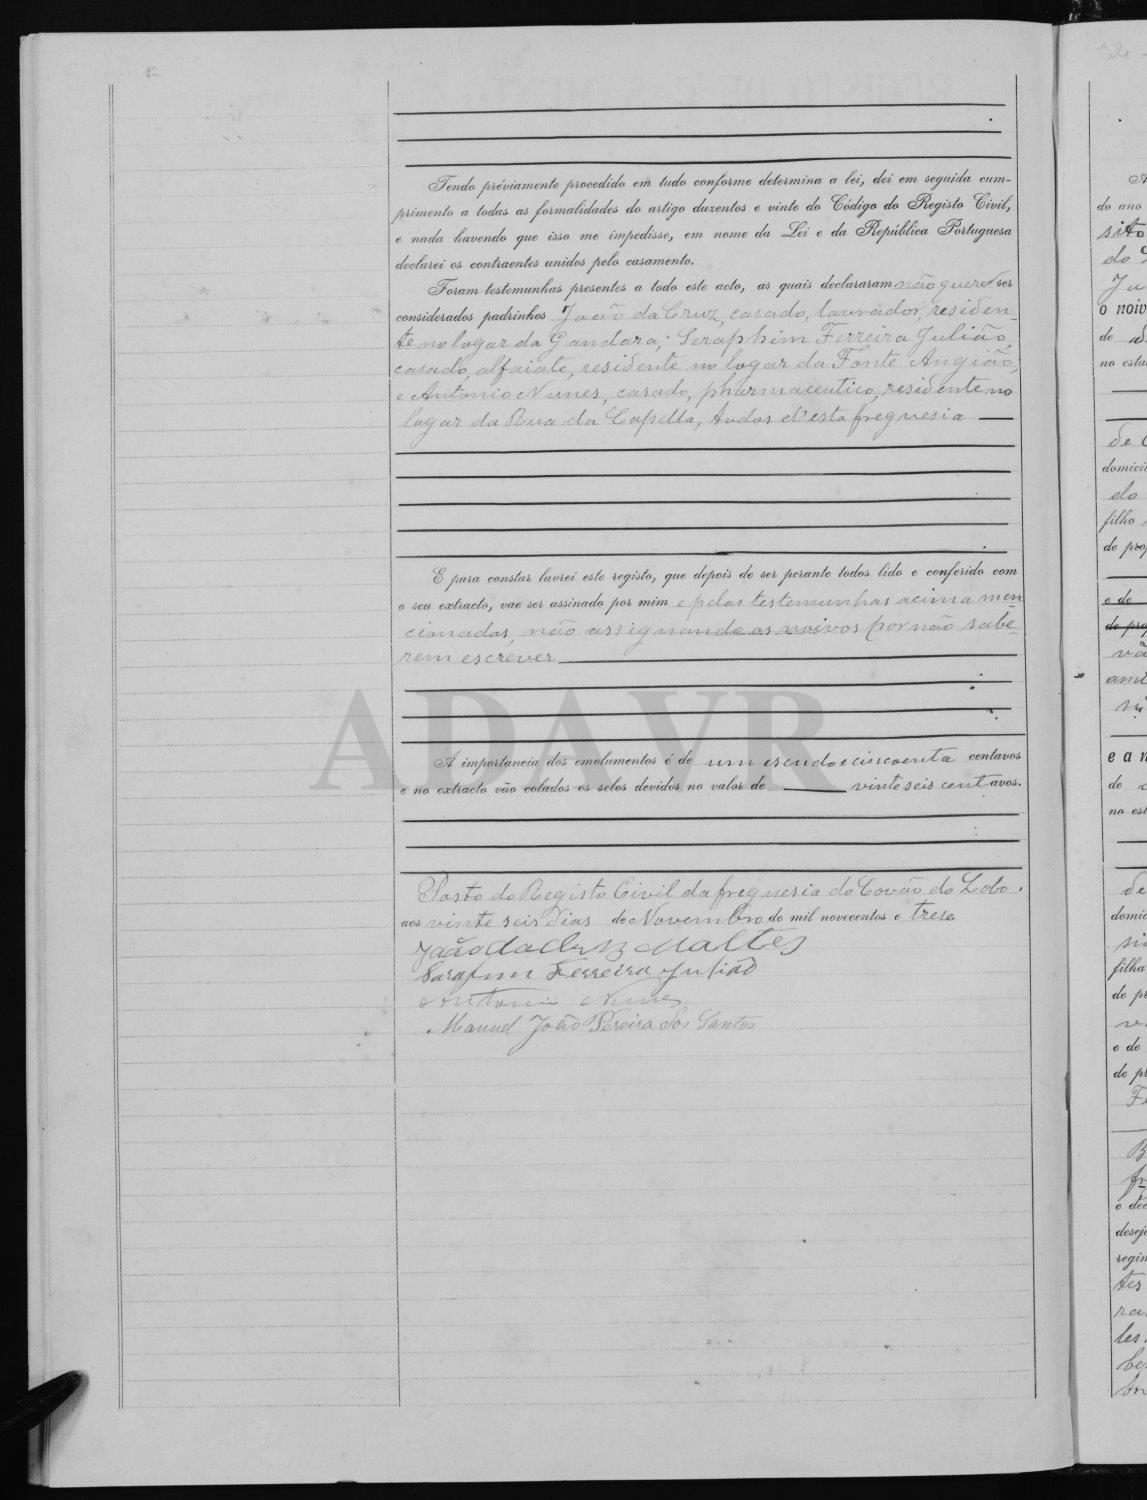 Tendo préviamente procedido em tudo conforme determina a lei, dei em seguida cum-
primento a todas as formalidades do artigo duzentos e vinte do Código do Registo Civil,
e nada havendo que isso me impedisse, em nome da Lei e da República Portuguesa
declarei os contraentes unidos pelo casamento.
Foram testemunhas presentes a todo este acto, as quais declararam não querer ser
considerados padrinhos João da Cruz, casado, lavrador, residen-
te no logar da Gandara; Seraphim Ferreira Julião,
casado, alfaiate, residente no logar da Fonte Angião;
e Antonio Nunes, casado, pharmaceutico, residente no
logar da Rua da Capella, todos d'esta freguesia
E para constar lavrei este registo, que depois de ser perante todos lido e conferido com
o seu extracto, vae ser assinado por mim e pelas testemunhas acima men-
cionadas, não assignando os noivos por não sabe-
rem escrever
ADAVR
A importancia dos emolumentos é de um escudo e cincoenta centavos
e no extracto vão colados os selos devidos no valor de vinte seis centavos.
Posto do Registo Civil da freguesia do Covão do Lobo,
aos vinte seis dias de Novembro de mil novecentos e trese
João da Cruz Maltez
Sarafim Ferreira Julião
Antonio Nunes
Manuel João Pereira dos Santos
do ano
sito
do
o noiv
de
no esta
de
domici
do
filho
de prof
e de
do pro
e a n
de
no est
de
domic
filha
de pr
e de
de pr
e dec
deseja
regim